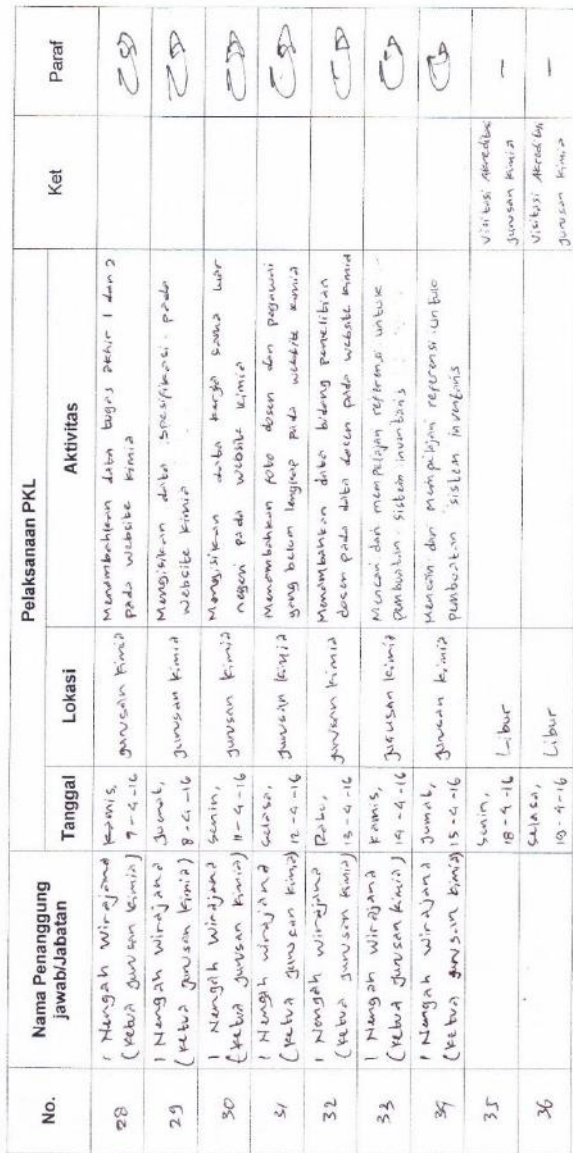 No.
Nama Penanggung
jawab/Jabatan
Pelaksanaan PKL
Tanggal
Lokasi
Aktivitas
Ket
Paraf
28
I Nengah Wirajana
(Ketua jurusan kimia)
Kamis,
7-4-16
Jurusan Kimia
Menambahkan data tugas akhir 1 dan 2
pada website kimia
29
I Nengah Wirajana
(Ketua jurusan kimia)
Jumat,
8-4-16
Jurusan Kimia
Mengisikan data spesifikasi pada
website kimia
30
I Nengah Wirajana
(Ketua jurusan kimia)
Senin,
11-4-16
Jurusan Kimia
Mengisikan data kerja sama luar
negeri pada website kimia
31
I Nengah Wirajana
(Ketua jurusan kimia)
Selasa,
12-4-16
Jurusan Kimia
Menambahkan foto dosen dan pegawai
yang belum lengkap pada website kimia
32
I Nengah Wirajana
(Ketua jurusan kimia)
Rabu,
13-4-16
Jurusan Kimia
Menambahkan data bidang penelitian
dosen pada data dosen pada website kimia
33
I Nengah Wirajana
(Ketua jurusan kimia)
Kamis,
14-4-16
Jurusan Kimia
Mencari dan mempelajari referensi untuk
pembuatan sistem inventaris
34
I Nengah Wirajana
(Ketua jurusan kimia)
Jumat,
15-4-16
Jurusan Kimia
Mencari dan mempelajari referensi untuk
pembuatan sistem inventaris
35
Senin,
18-4-16
Libur
Visitasi Akreditasi
Jurusan Kimia
-
36
Selasa,
19-4-16
Libur
Visitasi Akreditasi
Jurusan Kimia
-